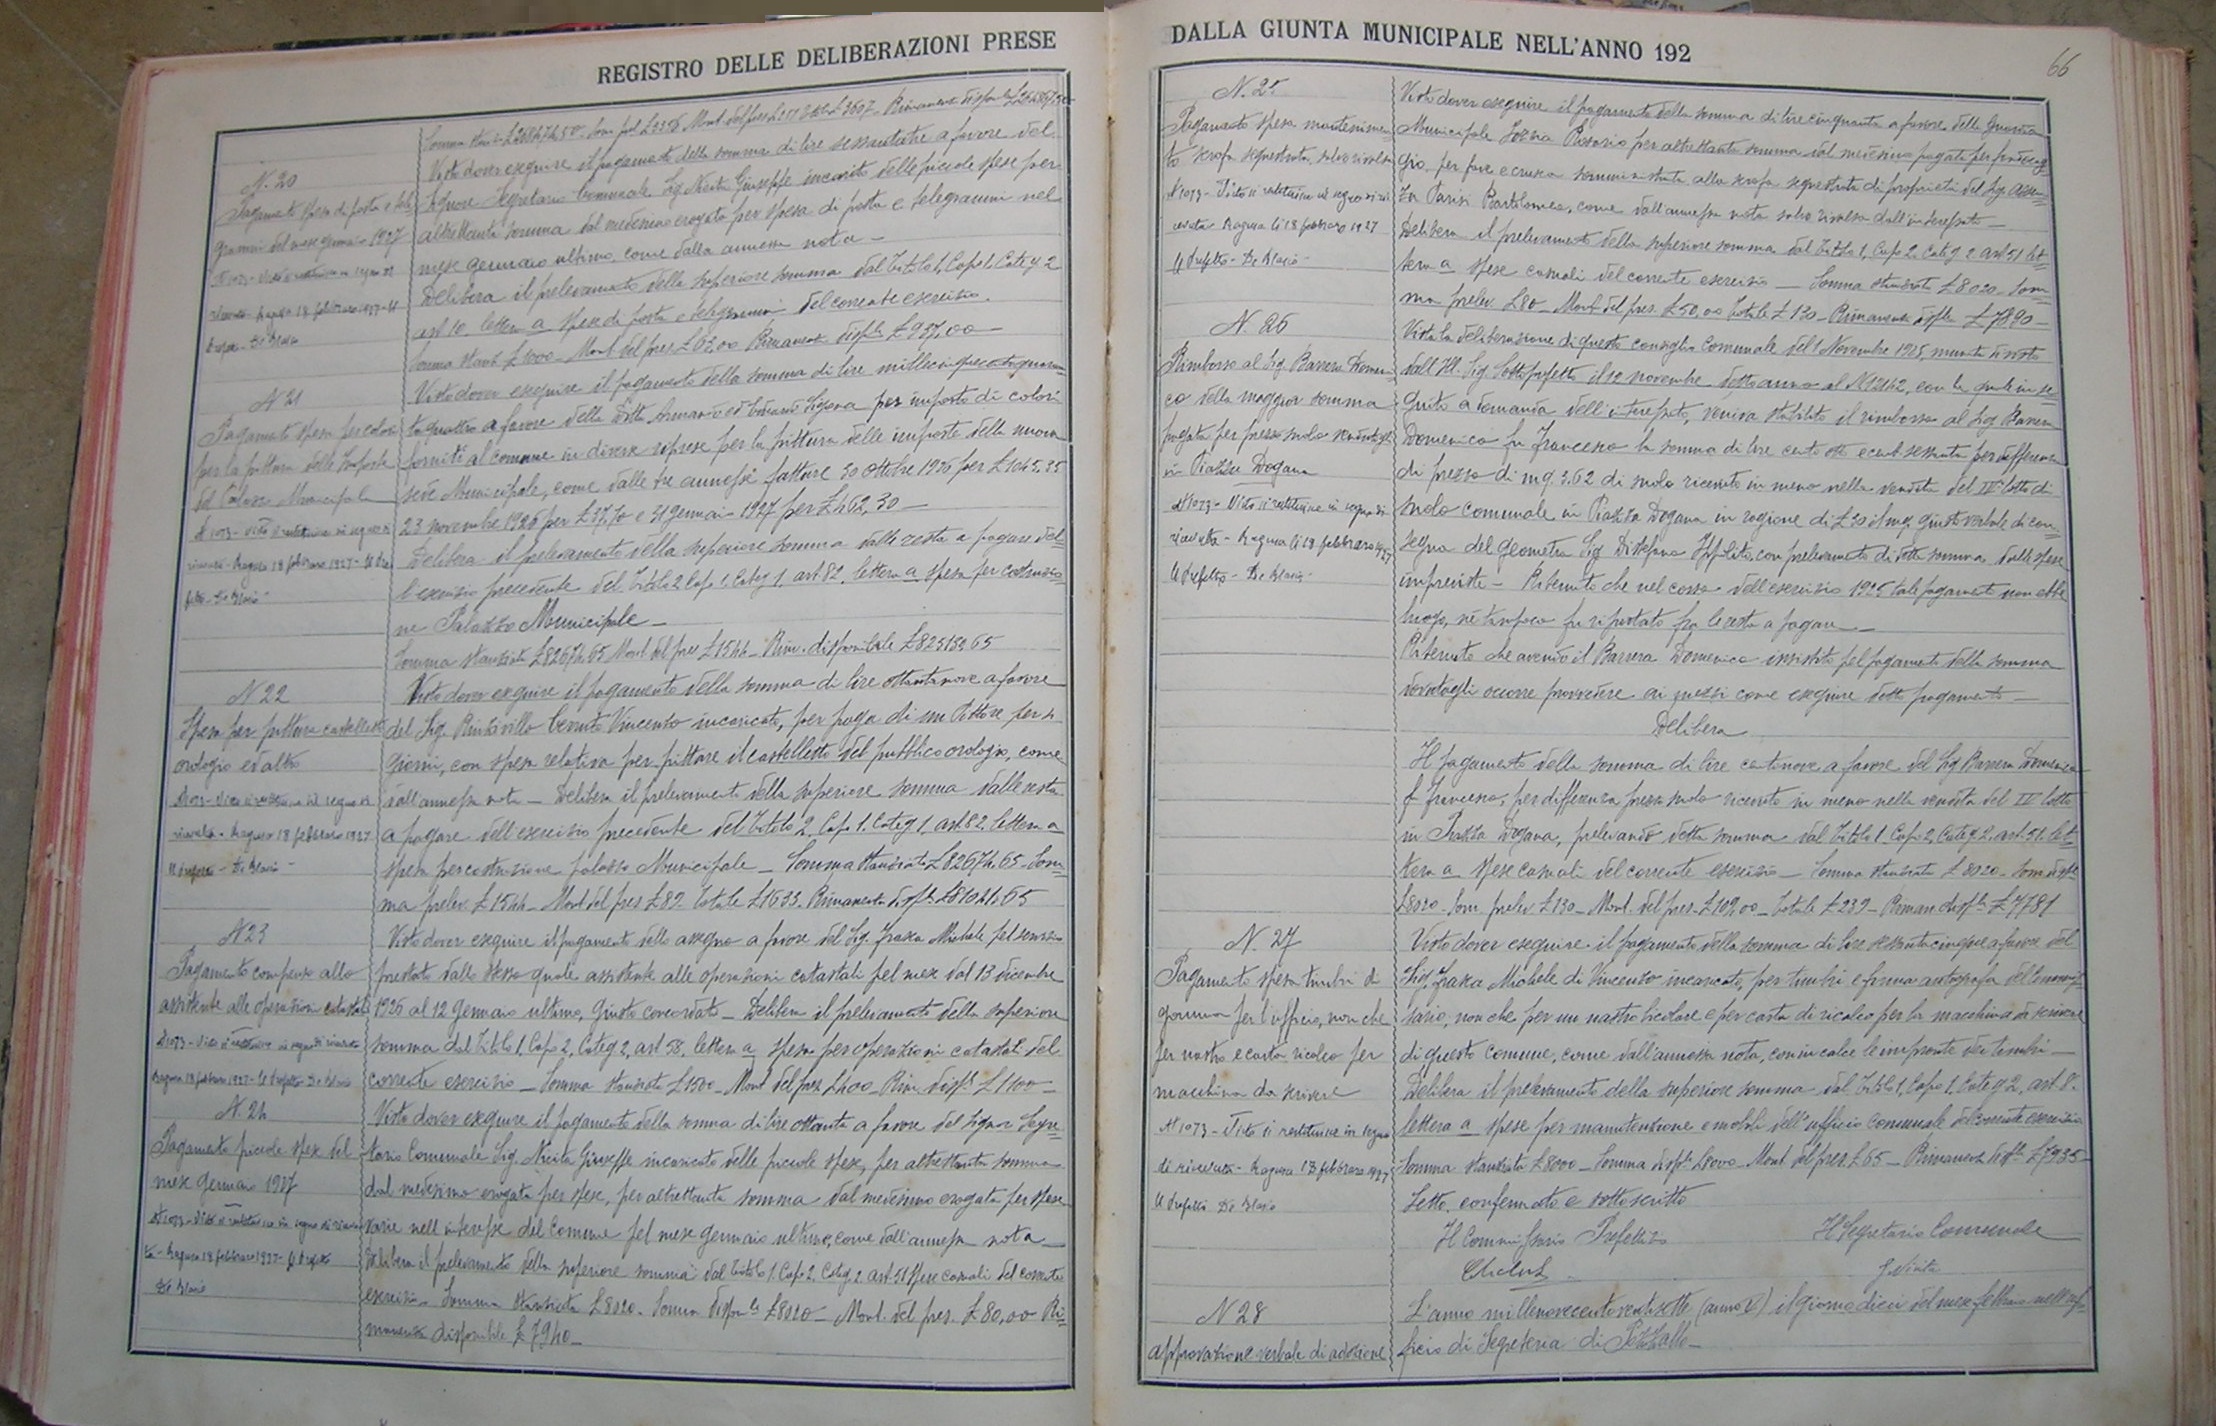 REGISTRO DELLE DELIBERAZIONI PRESE
N. 20
Pagamento spesa di posta e tele
grammi del mese gennaio 1927
Visto dover eseguire il pagamento della somma di lire sessantatre a favore del
Signore Segretario Comunale Sig. Nicita Giuseppe incaricato delle piccole spese per
altrettanta somma dal medesimo erogata per spesa di posta e telegrammi nel
mese gennaio ultimo, come dalla annessa nota –
Delibera il prelevamento della superiore somma dal Titolo 1, Capo 1, Categ 2
art. 10 lettera a spese di posta e telegrammi del corrente esercizio.
Somma stanz £ 1000 – Mont. del pres £ 63,00 Rimanenza disple £ 937,00 –
N 21
Pagamento spesa per colori
per la pittura delle imposte
del Palazzo Municipale
Visto dover eseguire il pagamento della somma di lire millecinquecentoquaran-
taquattro a favore della Ditta Armando ed Licausi per imposto di colori
forniti al comune in diverse riprese per la pittura delle imposte della nuova
sede Municipale, come dalle tre annesse fatture 30 ottobre 1926 per £ 1045,35
23 novembre 1926 per £ 37,70 e 31 gennaio 1927 per £ 462,30 –
Delibera il prelevamento della superiore somma dalle resta a pagare del-
l'esercizio precedente del Titolo 2 Capo 1. Categ 1, art 82, lettera a spesa per costruzio-
ne Palazzo Municipale –
Somma stanziata £ 82674,65 Mont. del pres £ 1544 – Rim. disponibile £
N 22
Spesa per pittura castelletto
orologio ed altro
Visto dover eseguire il pagamento della somma di lire ottantanove a favore
del Sig. Rinzivillo Vincenzo incaricato, per paga di un Pittore per
giorni, con spesa relativa per pittare il castelletto del pubblico orologio, come
dall'annessa nota – Delibera il prelevamento della superiore somma dalle resta
a pagare dell'esercizio precedente del Titolo 2, Capo 1. Categ 1, art. 82, lettera a
spesa per costruzione palazzo Municipale – Somma stanziata £ 82674,65 – Som-
ma prelev. £ 1544 – Mont. del pres £ 89 – Totale £ 1633 – Rimanenza disple £ 81041,65
N 23
Pagamento compenso allo
assistente alle operazioni catastali
Visto dover eseguire il pagamento dello assegno a favore del Sig. Michele pel servizio
prestato dallo stesso quale assistente alle operazioni catastali pel mese dal 13 dicembre
1926 al 12 Gennaio ultimo, giusto concordato – Delibera il prelevamento della superiore
somma dal Titolo 1, Capo 2, Categ 2, art 58, lettera a spesa per operazioni catastali del
corrente esercizio – Somma stanziata £ 1500 – Mont. del pres £ 400 – Rim. disple £ 1100 –
N. 24
Pagamento piccole spese del
mese gennaio 1927
Visto dover eseguire il pagamento della somma di lire ottanta a favore del Signor Segre-
tario Comunale Sig. Nicita Giuseppe incaricato delle piccole spese, per altrettanta somma
dal medesimo erogata per spese, per altrettanta somma dal medesimo erogata per spese
varie nell'interesse del Comune pel mese gennaio ultimo, come dall'annessa nota –
Delibera il prelevamento della superiore somma dal Titolo 1. Capo 2. Categ 2. art. 51 spese casuali del corrente
esercizio. Somma stanziata £ 8020. Somma dispon.le £ 8020 – Mont. del pres. £ 80,00 Ri-
manenza disponibile £ 7940 –
DALLA GIUNTA MUNICIPALE NELL'ANNO 192
66
N. 25
Pagamento spesa mantenimen-
to scrofa sequestrata, salvo rivalsa
N 1073 – Visto si restituisce in segno di ri
cevuta – Ragusa li 18 febbraio 1927
Il Prefetto – De Blasio –
Visto dover eseguire il pagamento della somma di lire cinquanta a favore della Guardia
Municipale Rosario per altrettanta somma dal medesimo pagata per foraggio
per fave e crusca somministrata alla scrofa sequestrata di proprietà del Sig.
Parisi Bartolomeo, come dall'annessa nota salvo rivalsa dall'interessato –
Delibera il prelevamento della superiore somma dal Titolo 1, Capo 2, Categ 2 art. 51 let-
tera a spese casuali del corrente esercizio – Somma stanziata £ 8020 – Som-
ma prelev. £ 80 – Mont. del pres. £ 50,00 Totale £ 130 – Rimanenza disple £ 7890 –
N. 26
Rimborso al Sig. Barrera Domeni-
co della maggior somma
pagata per prezzo suolo vendutogli
in Piazza Dogana
N 1073 – Visto si restituisce in segno di
ricevuta – Ragusa li 18 febbraio 1927
Il Prefetto – De Blasio –
Vista la deliberazione di questo consiglio Comunale del 1 Novembre 1925 munita di visto
dall'Ill. Sig. Sottoprefetto il 12 novembre detto anno al N 12162, con la quale in se-
guito a domanda dell'interessato, veniva stabilito il rimborso al Sig Barrera
Domenico fu Francesco la somma di lire cento otto e cent. sessanta per differenza
di prezzo di mq 3.62 di suolo ricevuto in meno nella vendita del IV lotto di
suolo comunale in Piazza Dogana in ragione di £ 30 il mq. giusto verbale di con-
segna del geometra Sig Distefano Ippolito, con prelevamento di detta somma dalle spese
impreviste – Ritenuto che nel corso dell'esercizio 1925 tale pagamento non ebbe
luogo, né tampoco fu riportato fra le resta a pagare –
Ritenuto che avendo il Barrera Domenico insistito pel pagamento della somma
dovutagli occorre provvedere ai mezzi come eseguire detto pagamento –
Delibera
Il pagamento della somma di lire centonove a favore del Sig Barrera Domenico
fu Francesco, per differenza prezzo suolo ricevuto in meno nella vendita del IV lotto
in Piazza Dogana, prelevando detta somma dal Titolo 1. Capo 2, Categ 2. art. 51. let-
tera a spese casuali del corrente esercizio – Somma stanziata £ 8020 – Som. disple
£ 8020 – Som. prelev £ 130 – Mont. del pres. £ 109,00 – Totale £ 239 – Riman disple £ 7781
N. 27
Pagamento spesa timbri di
gomma per l'ufficio, non che
per nastro e carta ricalco per
macchina da scrivere
N 1073 – Visto si restituisce in segno
di ricevuta – Ragusa 18 febbraio 1927
Il Prefetto De Blasio
Visto dover eseguire il pagamento della somma di lire sessantacinque a favore del
Sig. Michele di Vincenzo incaricato, per timbri e firma autografa del Commis-
sario, non che per un nastro bicolore e per carta di ricalco per la macchina da scrivere
di questo comune, come dall'annessa nota, con in calce le impronte dei timbri –
Delibera il prelevamento della superiore somma dal Titolo 1, Capo 1, Categ 2, art. 8.
lettera a spese per manutenzione e mobili dell'ufficio comunale del corrente esercizio
Somma stanziata £ 8000 – Somma disple £ 8000 – Mont. del pres £ 65 – Rimanenza disple £ 7935 –
Letto, confermato e sottoscritto
Il Commissario Prefettizio
Il Segretario Comunale
G. Nicita
N 28
Approvazione verbale di adozione
L'anno millenovecentoventisette (anno V) il giorno dieci del mese febbraio nell'uf-
ficio di Segreteria di Pozzallo –